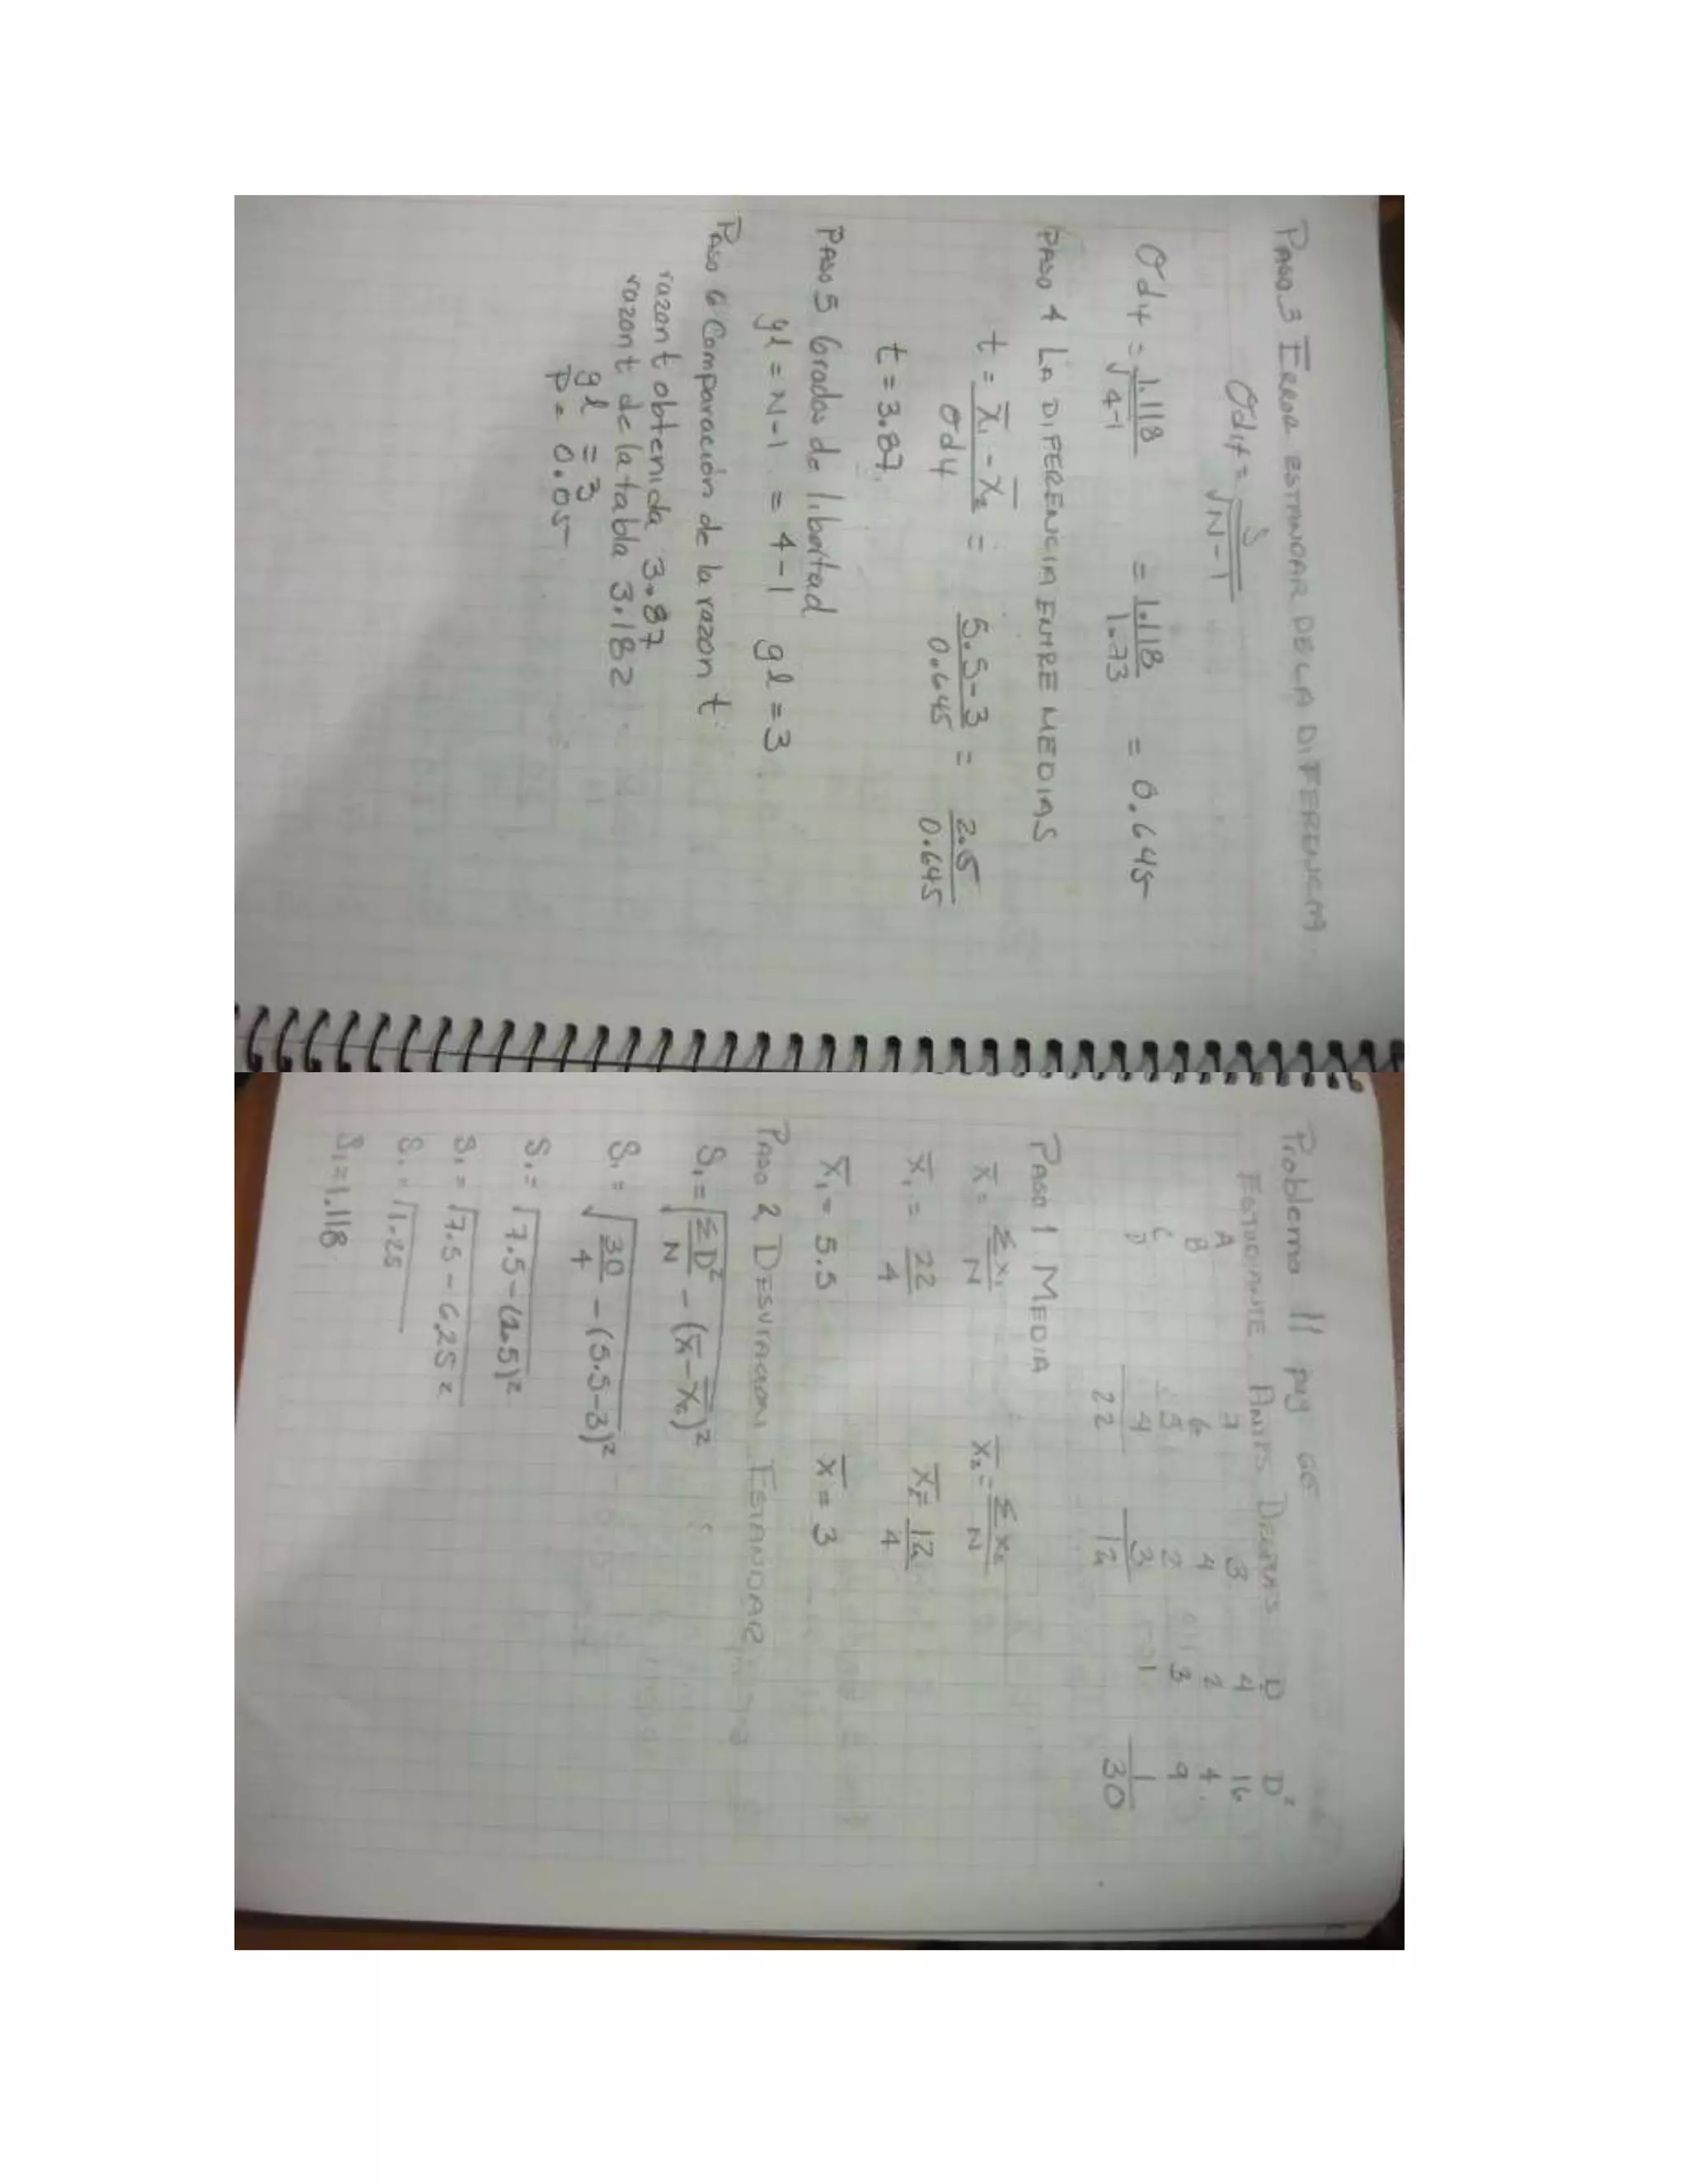 Problema 11 pag
ESTUDIANTE ANTES DESPUES D D²
A 7 3 4 16
B 6 4 2 4
C 5 2 3 9
D 4 3 1 1
22 12 30
PASO 1 MEDIA
X̄ = Σx₁/N X̄₂ = Σx₂/N
X̄₁ = 22/4 X̄₂ = 12/4
X̄₁ = 5.5 X̄ = 3
PASO 2 DESVIACION ESTANDAR
S₁ = √ΣD²/N - (X̄₁ - X̄₂)²
S₁ = √30/4 - (5.5-3)²
S₁ = √7.5 - (2.5)²
S₁ = √7.5 - 6.25²
S₁ = √1.25
S₁ = 1.118
PASO 3 ERROR ESTANDAR DE LA DIFERENCIA
σdif = S/√N-1
σdif = 1.118/√4-1 = 1.118/1.73 = 0.645
PASO 4 LA DIFERENCIA ENTRE MEDIAS
t = X̄₁ - X̄₂/σdif = 5.5-3/0.645 = 2.5/0.645
t = 3.87
PASO 5 Grados de libertad
gl = N-1 = 4-1 gl = 3
PASO 6 Comparación de la razon t
razon t obtenida 3.87
razon t de la tabla 3.182
gl = 3
P = 0.05